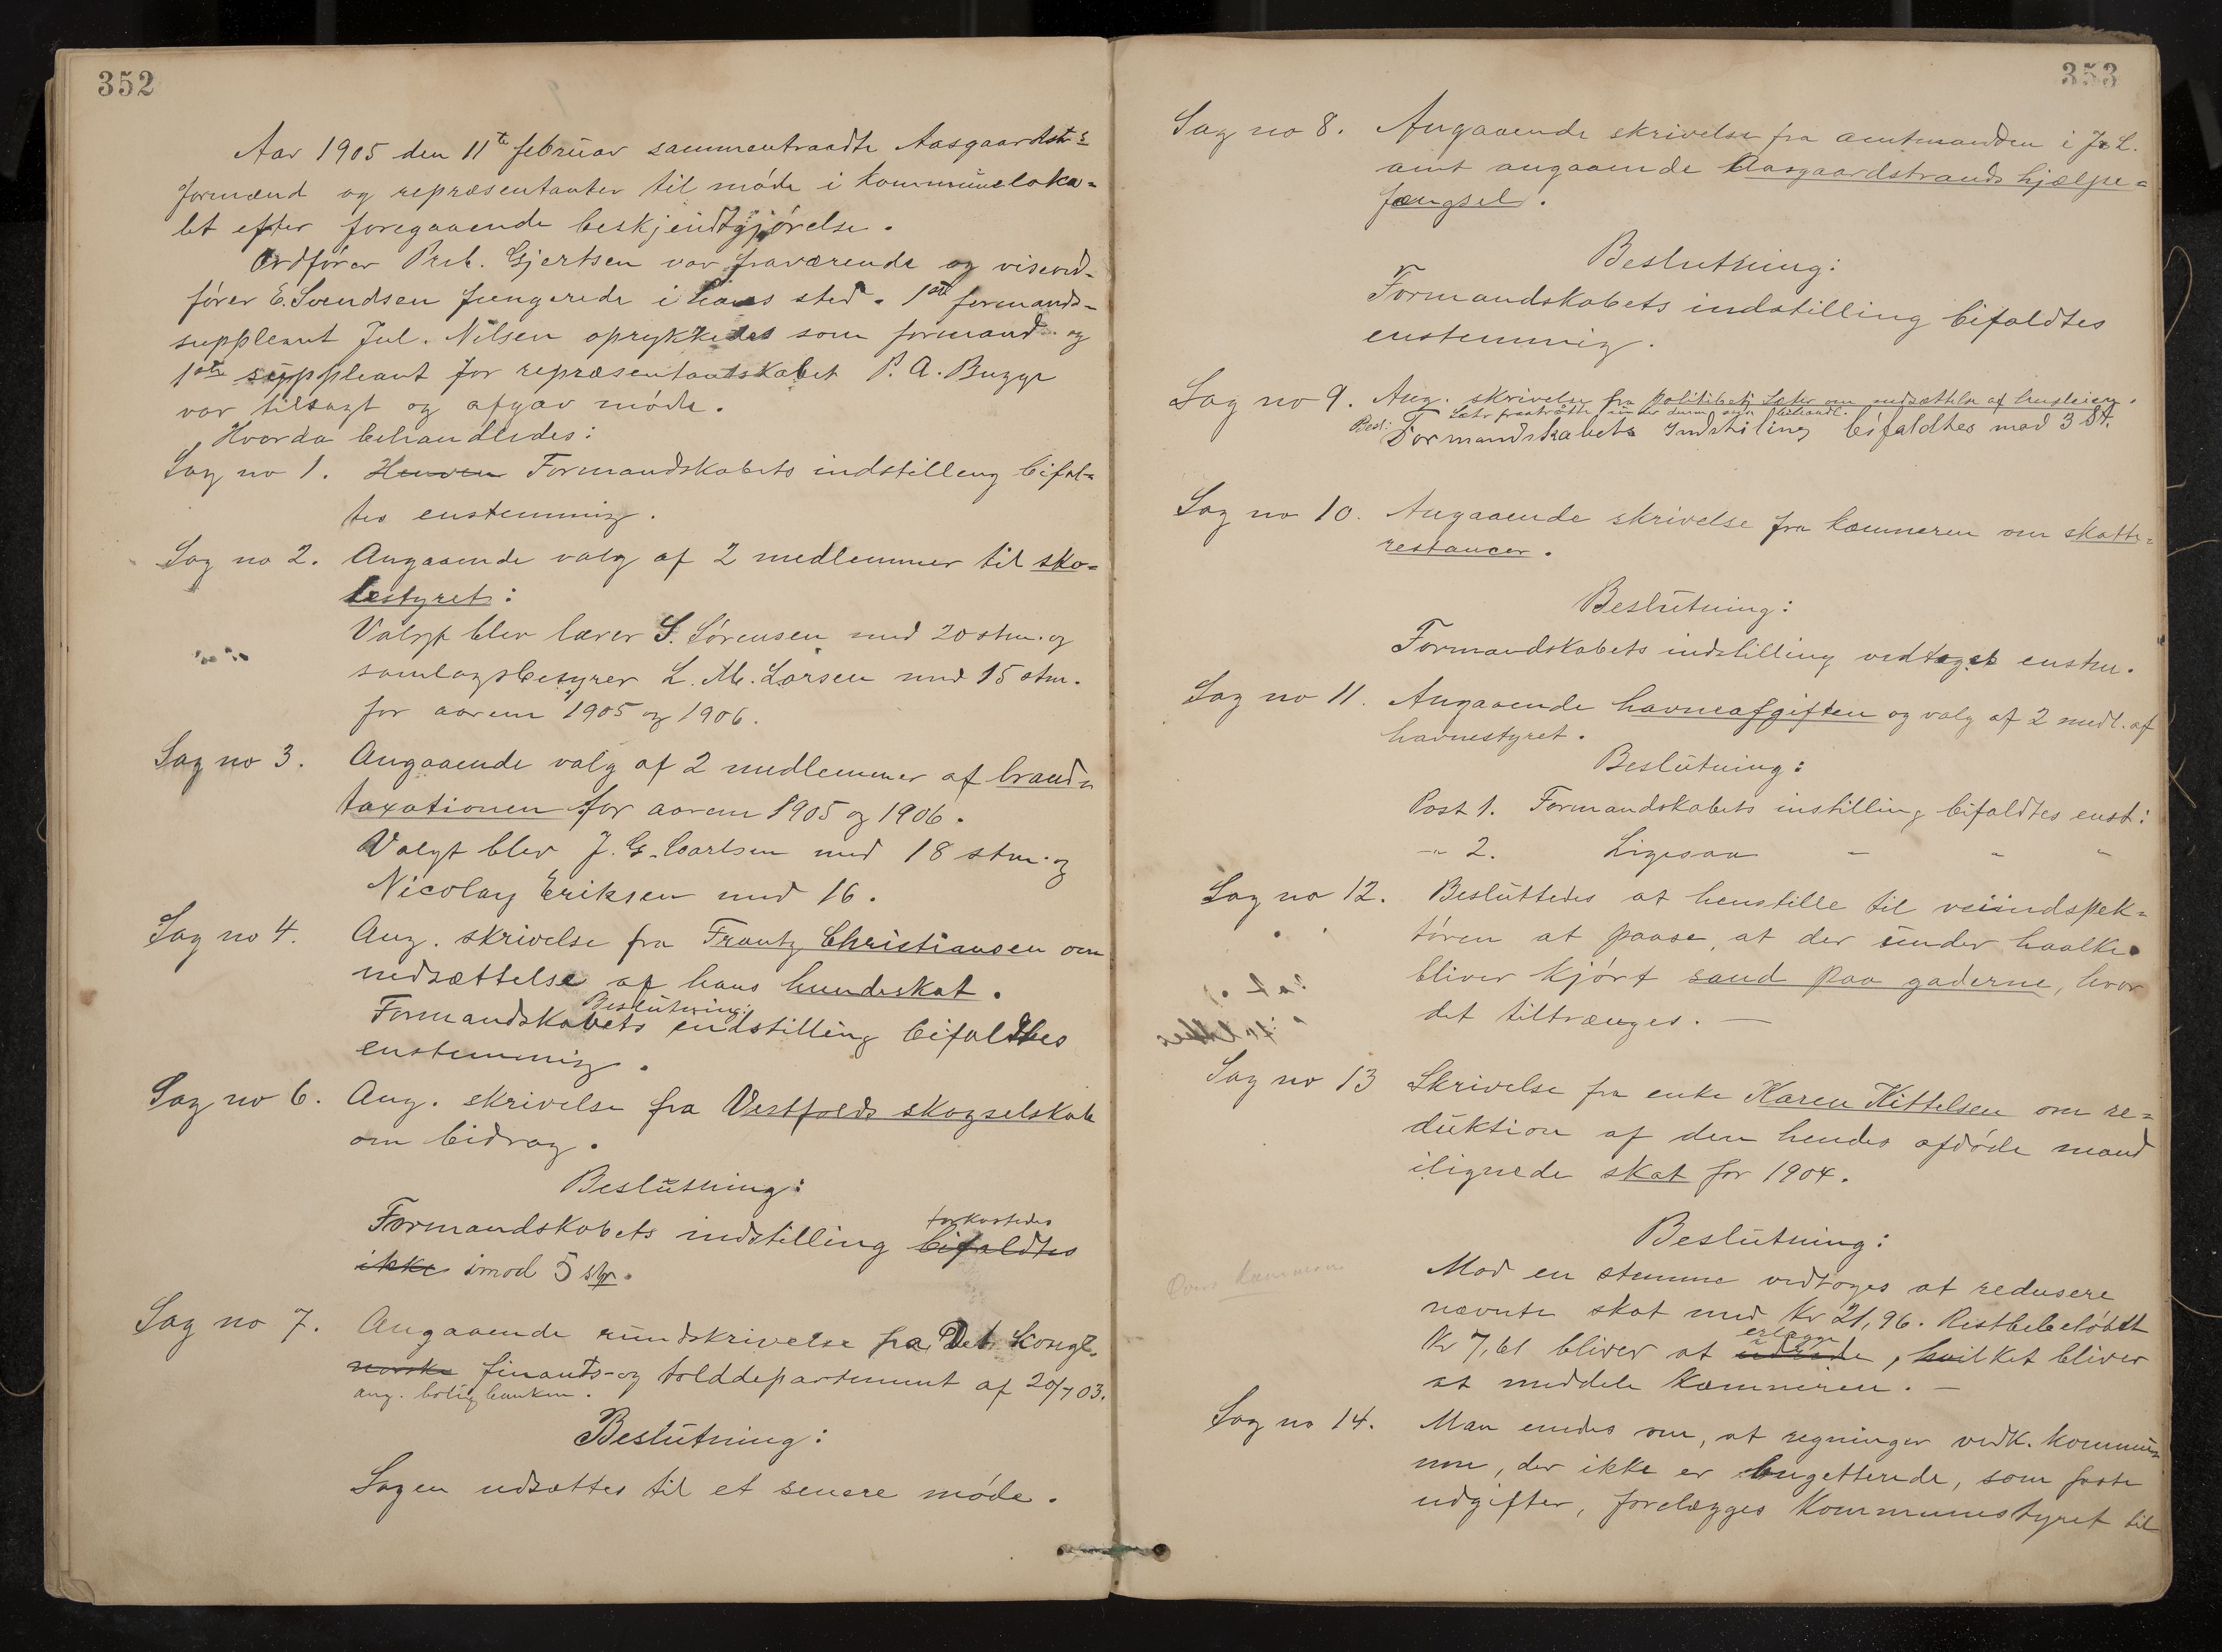 352
Aar 1905 den 11te februar sammentraadte Aasgaardstr.s
formænd og repræsentanter til møde i kommuneloka=
let efter foregaaende beskjendtgjørelse.
Ordfører Preb. Gjertsen var fraværende og viseord-
fører E. Svendsen fungerede i hans sted. 1ste formands-
suppleant Jul. Nilsen oprykkedes som formand og
1ste suppleant for repræsentantskabet P. A. Bugge
var tilsagt og afgav møde.
Hvorda behandledes:
Sag no 1. Formandskabets indstilling bifal-
tes enstemmig.
Sag no 2. Angaaende valg af 2 medlemmer til sko-
lestyret:
Valgt blev lærer S. Sørensen med 20 stm. og
samlagsbestyrer L. M. Larsen med 15 stm.
for aarene 1905 og 1906.
Sag no 3. Angaaende valg af 2 medlemmer af brand-
taxationen for aarene 1905 og 1906.
Valgt blev J. G. Carlsen med 18 stm. og
Nicolay Eriksen med 16.
Sag no 4. Ang. skrivelse fra Frantz Christiansen om
nedsættelse af hans hundeskat.
Beslutning:
Formandskabets indstilling bifaldtes
enstemmig.
Sag no 6. Ang. skrivelse fra Vestfolds skogselskab
om bidrag.
Beslutning:
forkastedes
Formandskabets indstilling bifaldtes
ikke imod 5 str.
Sag no 7. Angaaende rundskrivelse fra Det Kongl.
norske finants- og tolddepartement af 20/7 03.
ang. boligbanken.
Beslutning:
Sagen udsættes til et senere møde.
353
Sag no 8. Angaaende skrivelse fra amtmanden i J. & L.
amt angaaende Aasgaardstrands hjælpe=
fængsel.
Beslutning:
Formandskabets indstilling bifaldtes
enstemmig.
Sag no 9. Ang. skrivelse fra politibetj. Sæter om nedsættelse af husleien.
Sæter fratraadte under denne sags behandl.
Besl: Formandskabets Indstiling bifaldtes mod 3 St.
Sag no 10. Angaaende skrivelse fra kæmneren om skatte=
restancer.
Beslutning:
Formandskabets indstilling vedtaget enstm.
Sag no 11. Angaaende havneafgiften og valg af 2 medl. af
havnestyret.
Beslutning:
Post 1. Formandskabets instilling bifaldtes enst:
-"- 2. Ligesaa - " "
Sag no 12. Besluttedes at henstille til veiindspek=
tøren at paase, at der under haalke
bliver kjørt sand paa gaderne, hvor
det tiltrænges. —
Sag no 13 Skrivelse fra enke Karen Kittelsen om re=
duktion af den hendes afdøde mand
ilignede skat for 1904.
Beslutning:
Mod en stemme vedtoges at redusere
nævnte skat med Kr 21,96. Restbebeløbet
erlægge
Kr 7,61 bliver at udrede, hvilket bliver
at meddele kæmneren. —
Sag no 14. Man enedes om, at regninger vedk. kommu-
nen, der ikke er bugetterede, som faste
udgifter, forelægges Kommunestyret til